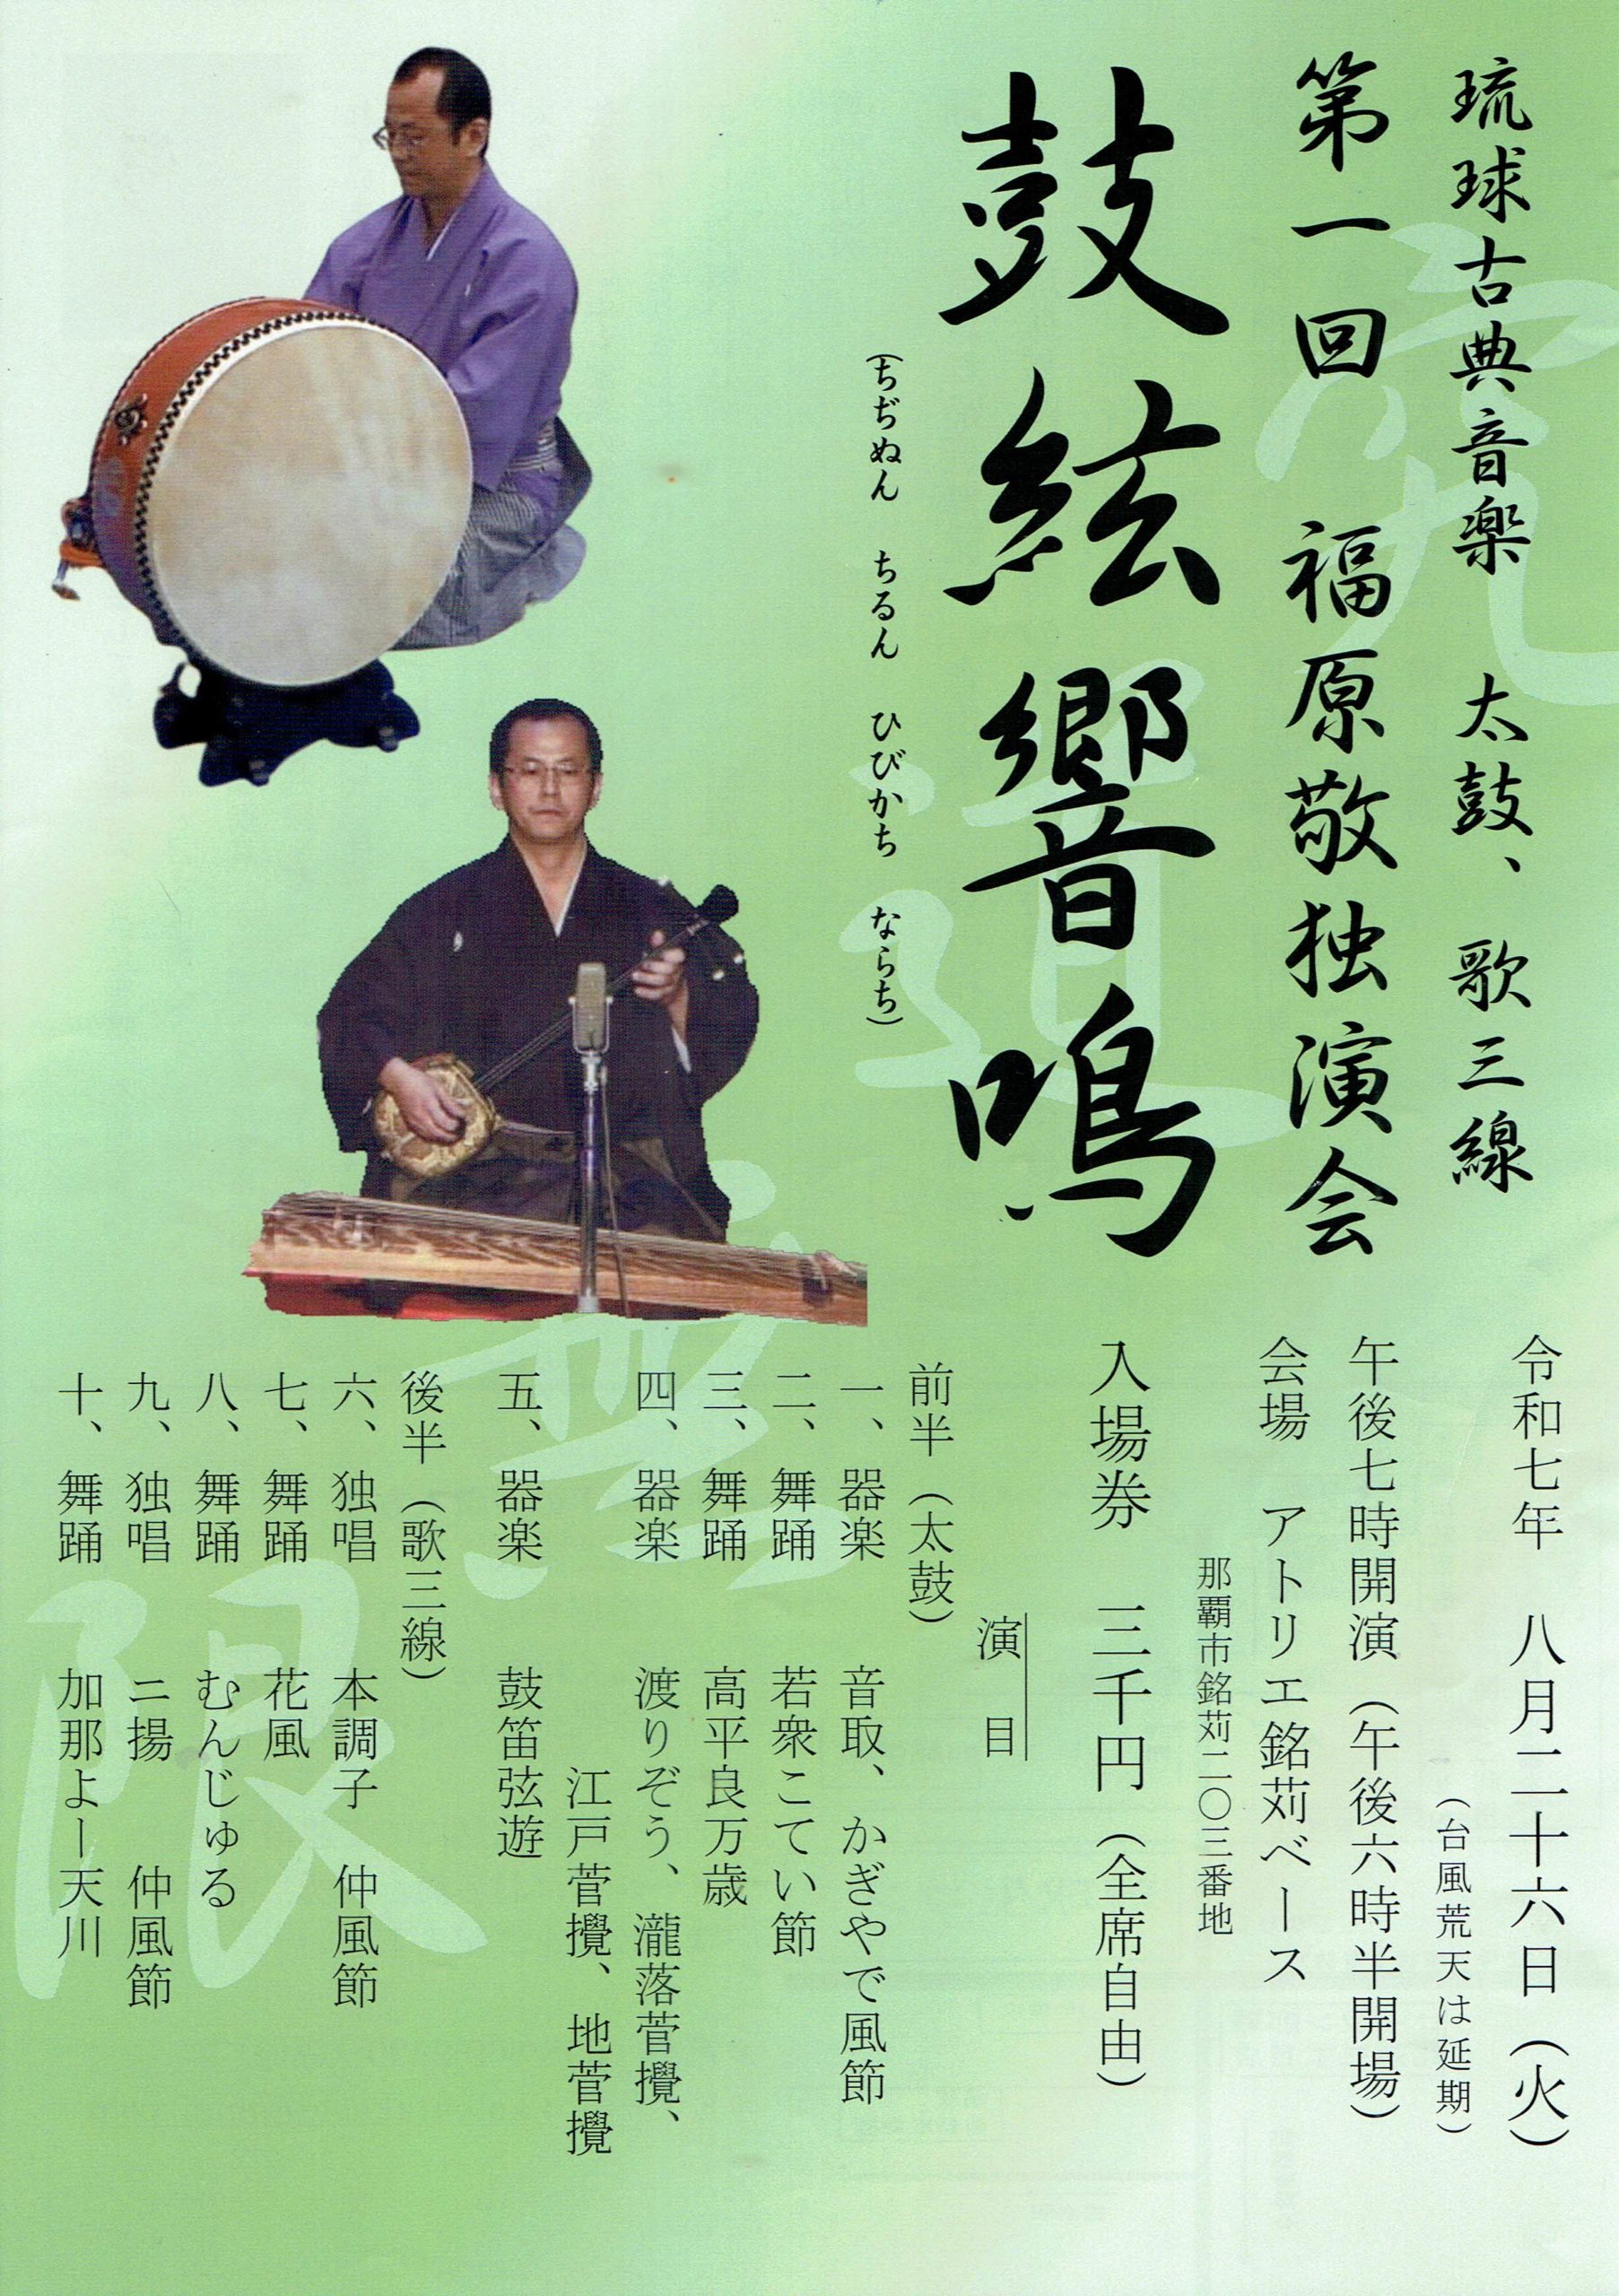 琉球古典音楽　太鼓、歌三線
第一回　福原敬独演会
鼓絃響鳴
（ちぢぬん　ちるん　ひびかち　ならち）
令和七年　八月二十六日（火）
（台風荒天は延期）
午後七時開演（午後六時半開場）
会場　アトリエ銘苅ベース
那覇市銘苅二〇三番地
入場券　三千円（全席自由）
演目
前半（太鼓）
一、器楽　音取、かぎやで風節
二、舞踊　若衆こてい節
三、舞踊　高平良万歳
四、器楽　渡りぞう、瀧落菅攪、
江戸菅攪、地菅攪
五、器楽　鼓笛弦遊
後半（歌三線）
六、独唱　本調子　仲風節
七、舞踊　花風
八、舞踊　むんじゅる
九、独唱　二揚　仲風節
十、舞踊　加那よー天川
道
無
限